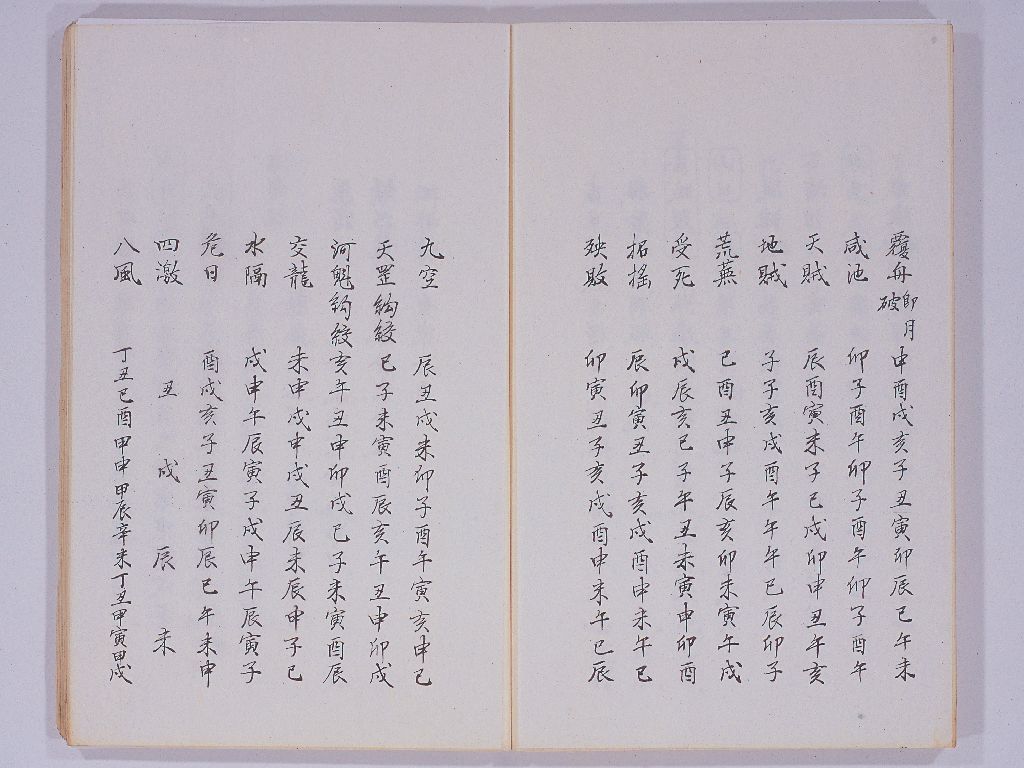 覆舟 即月破 申酉戌亥子丑寅卯辰巳午未
咸池 卯子酉午卯子酉午卯子酉午
天賊 辰酉寅未子巳戌卯申丑午亥
地賊 子子亥戌酉午午午巳辰卯子
荒蕪 巳酉丑申子辰亥卯未寅午戌
受死 戌辰亥巳子午丑未寅申卯酉
招搖 辰卯寅丑子亥戌酉申未午巳
殃敗 卯寅丑子亥戌酉申未午巳辰
九空 辰丑戌未卯子酉午寅亥申巳
天罡鈎絞 巳子未寅酉辰亥午丑申卯戌
河魁鈎絞 亥午丑申卯戌巳子未寅酉辰
交龍 未申戌申戌丑辰未辰申子巳
水隔 戌申午辰寅子戌申午辰寅子
危日 酉戌亥子丑寅卯辰巳午未申
四激 丑 戌 辰 未
八風 丁丑己酉甲申甲辰辛未丁丑甲寅甲戌